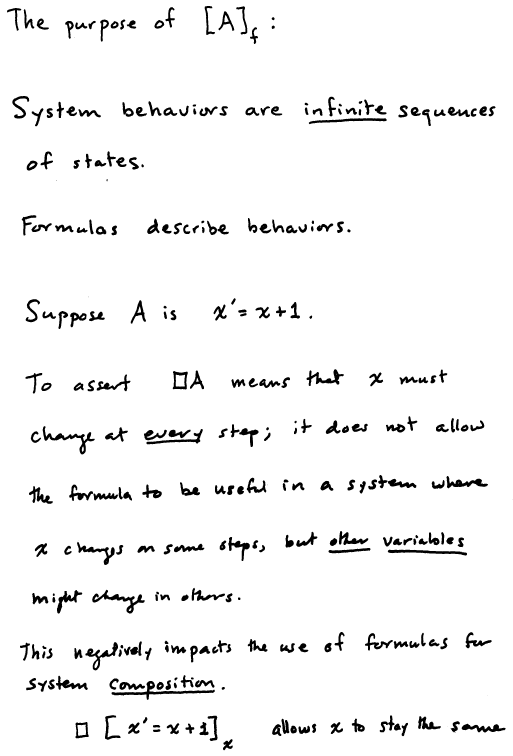 The purpose of [A]_f :
System behaviors are infinite sequences
of states.
Formulas describe behaviors.
Suppose A is x' = x + 1 .
To assert □A means that x must
change at every step; it does not allow
the formula to be useful in a system where
x changes on some steps, but other variables
might change in others.
This negatively impacts the use of formulas for
system composition.
□ [ x' = x + 1 ]_x allows x to stay the same